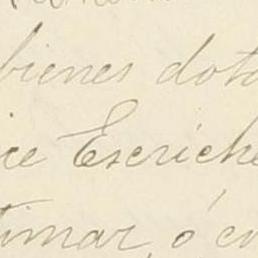 bienes dota
ice Escriche
timar, ó co